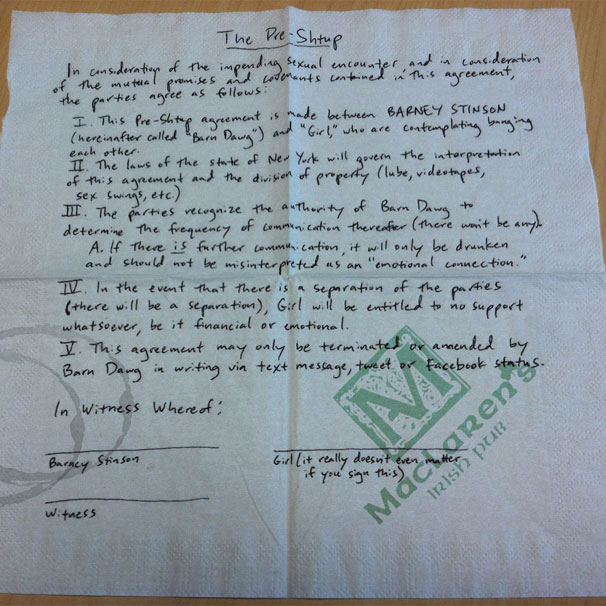 The Pre-Shtup
In consideration of the impending sexual encounter and in consideration
of the mutual promises and covenants contained in this agreement,
the parties agree as follows:
I. This Pre-Shtup agreement is made between BARNEY STINSON
(hereinafter called "Barn Dawg") and "Girl," who are contemplating banging
each other.
II. The laws of the state of New York will govern the interpretation
of this agreement and the division of property (lube, videotapes,
sex swings, etc)
III. The parties recognize the authority of Barn Dawg to
determine the frequency of communication thereafter (there won't be any).
A. If there is further communication, it will only be drunken
and should not be misinterpreted as an "emotional connection."
IV. In the event that there is a separation of the parties
(there will be a separation), Girl will be entitled to no support
whatsoever, be it financial or emotional.
V. This agreement may only be terminated or amended by
Barn Dawg in writing via text message, tweet or Facebook status.
In Witness Whereof:
Barney Stinson
Girl (it really doesn't even matter
if you sign this)
Witness
M
MacLaren's
IRISH PUB